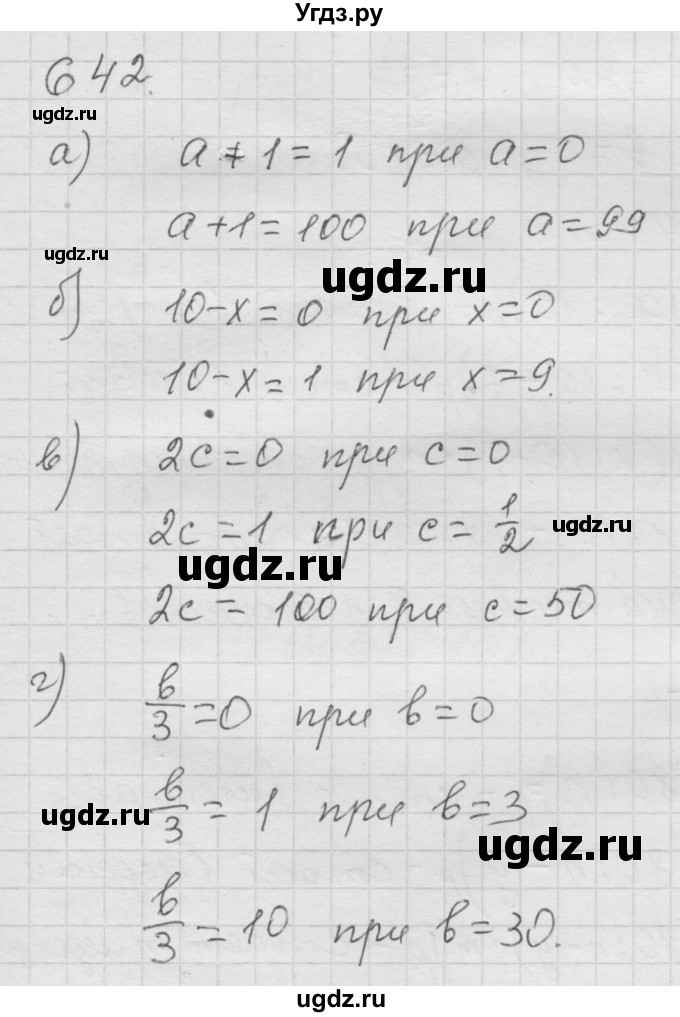 Угдз.ру
642.
ugdz.ru
а) a + 1 = 1 при a = 0
a + 1 = 100 при a = 99
ugdz.ru
ugdz.ru
б) 10 - x = 0 при x = 0
10 - x = 1 при x = 9.
в) 2c = 0 при c = 0
2c = 1 при c = 1/2
ugdz.ru
ugdz.ru
2c = 100 при c = 50
г) b/3 = 0 при b = 0
b/3 = 1 при b = 3
ugdz.ru
ugdz.ru
b/3 = 10 при b = 30.
ugdz.ru